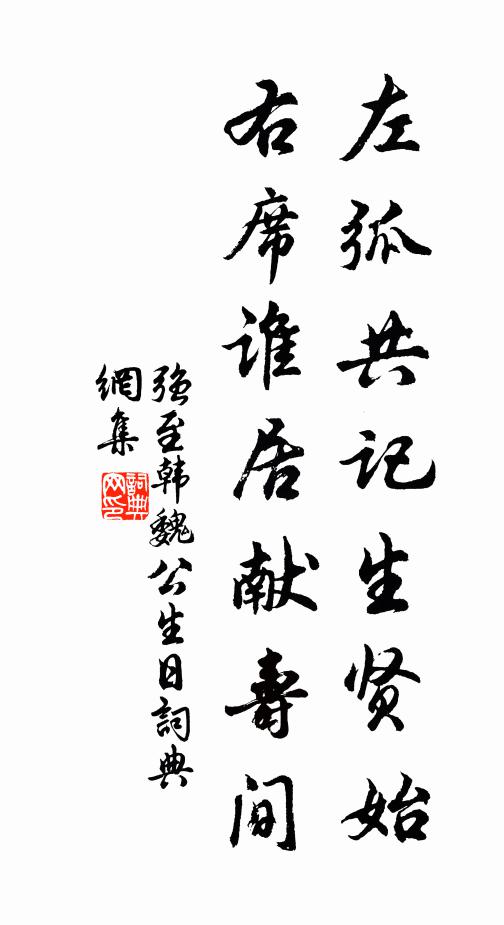 左弧共记生贤始
右席谁居献壽间
强至韩魏公生日詞典
網集
詞典
网印